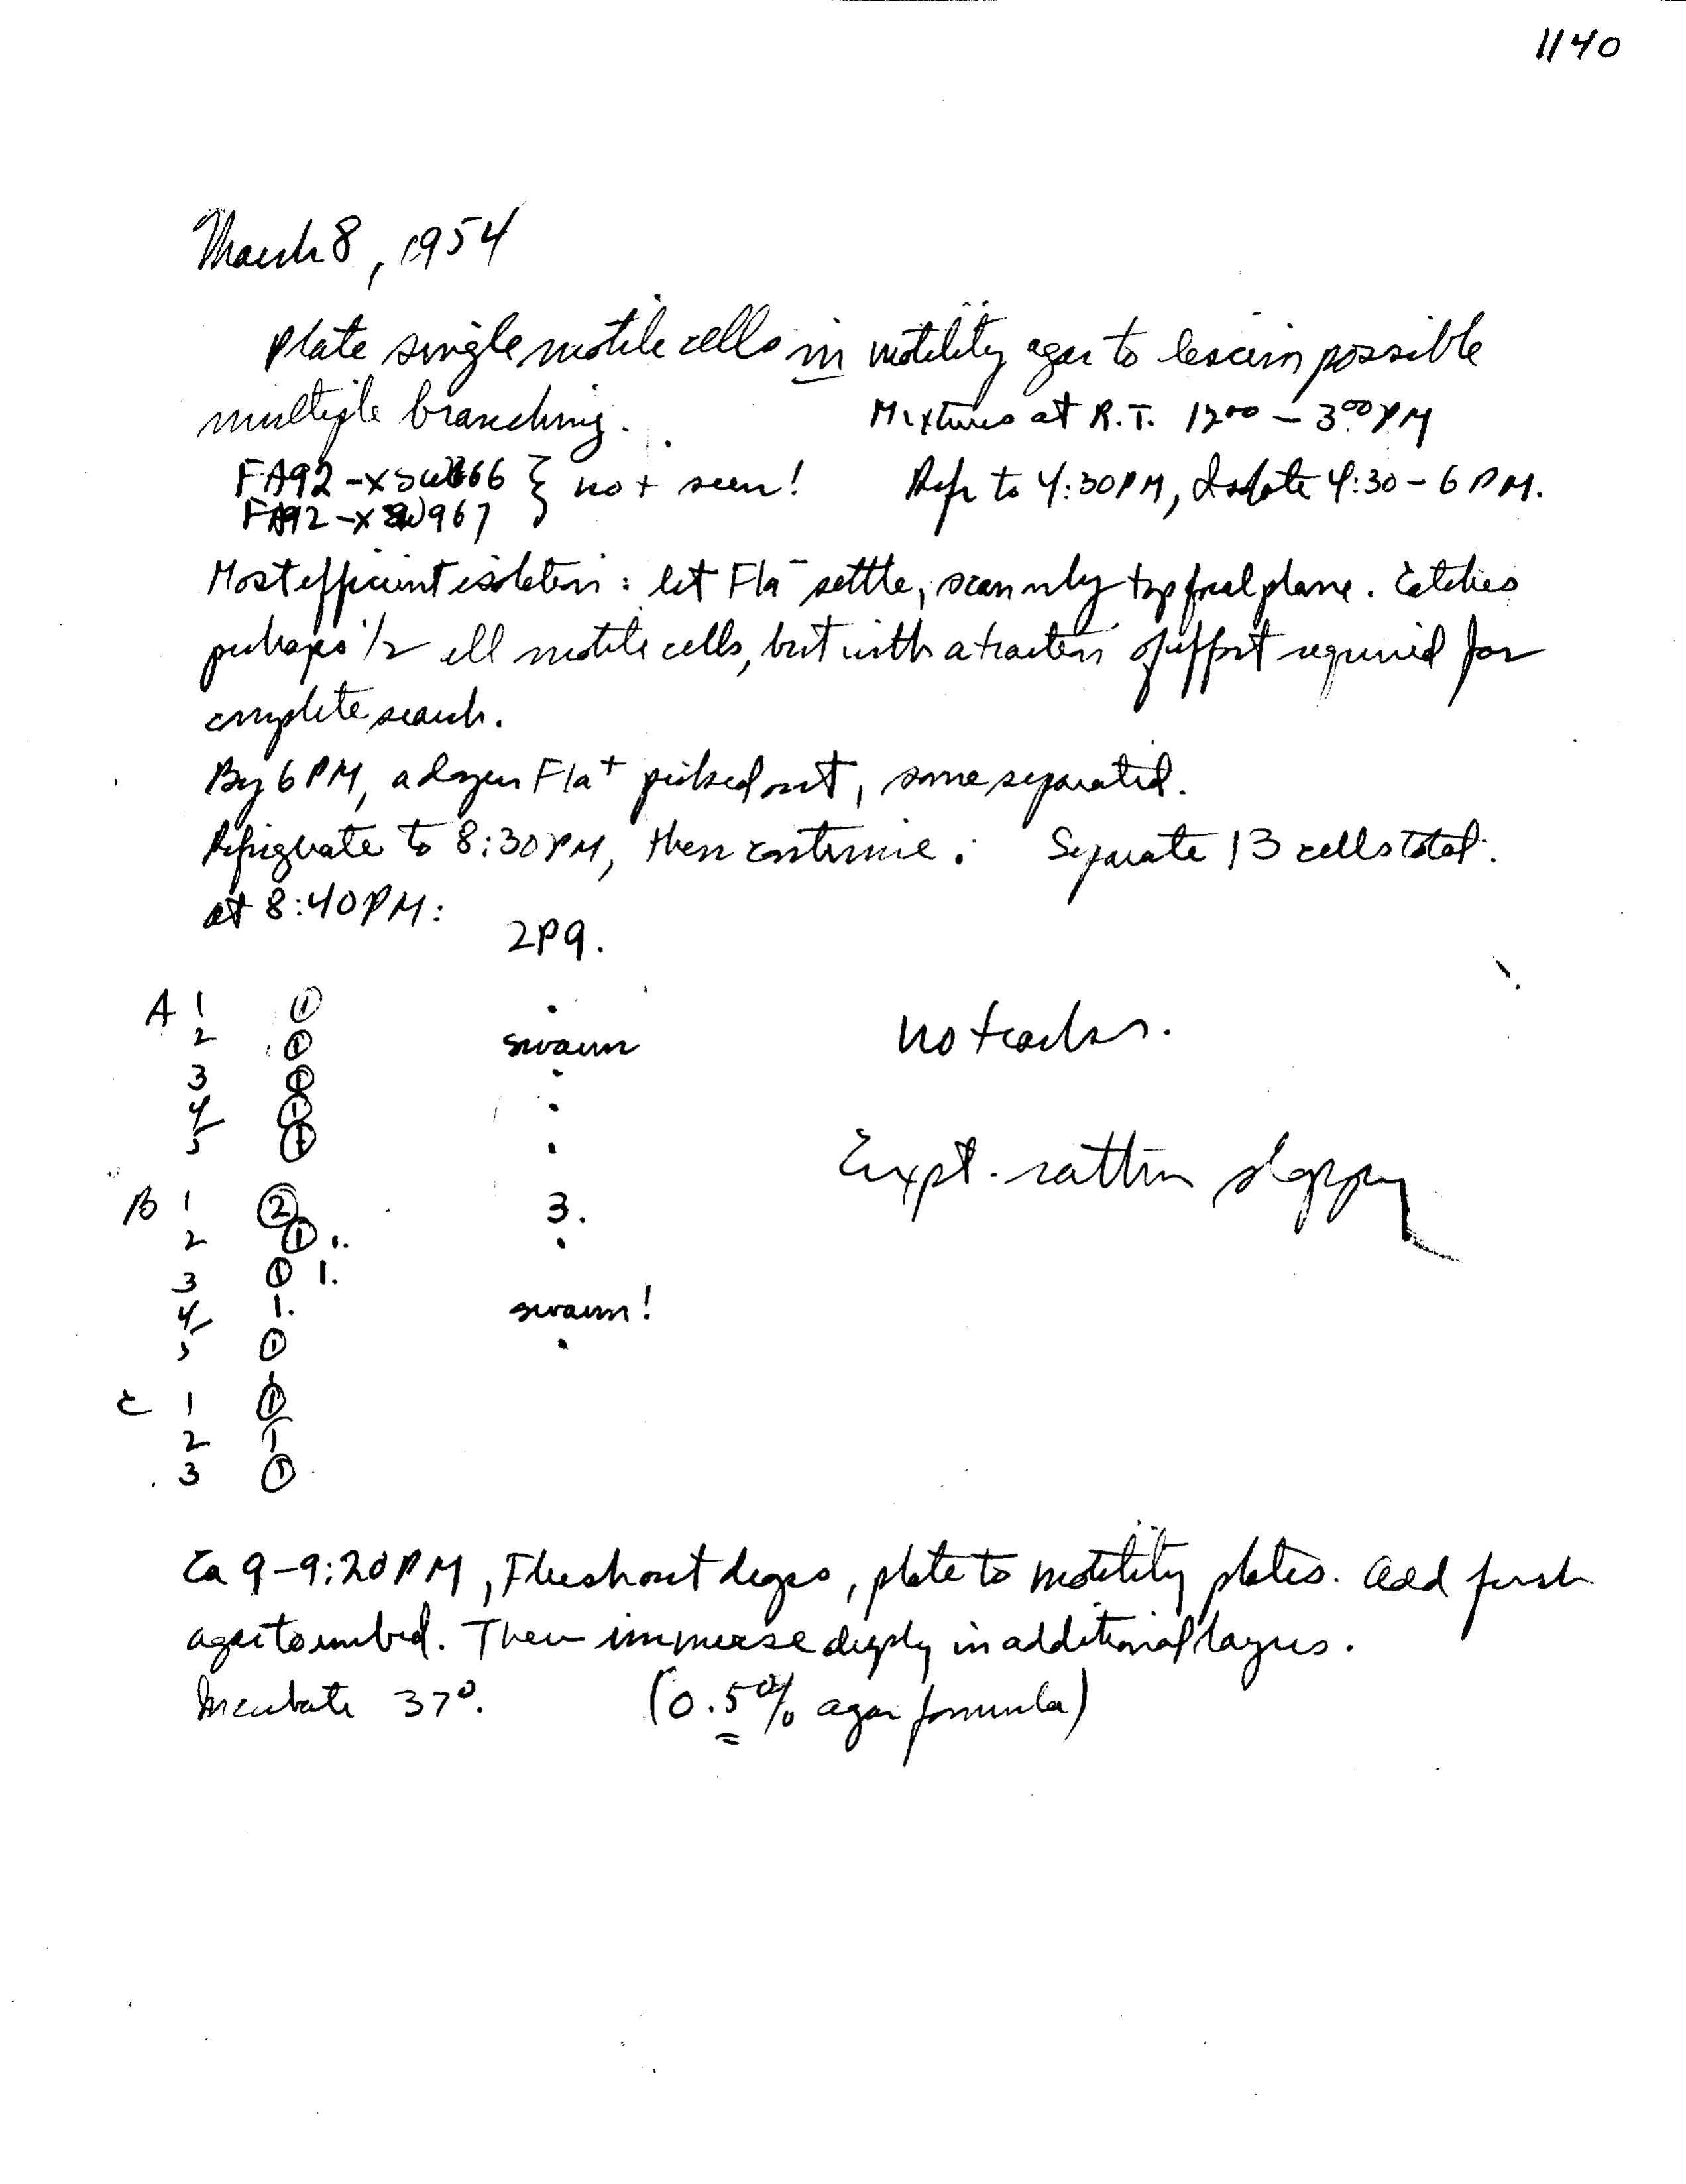 1140
March 8, 1954
Plate single motile cells in motility agar to lessen possible
multiple branching. Mixtures at R.T. 12:00 – 3:00 PM
FA92 –x SW666 } not seen! Refr to 4:30PM, Isolate 4:30 – 6 PM.
FA92 –x SW967
Most efficient isolation: let Fla⁻ settle, scan only top focal plane. Catches
perhaps 1/2 all motile cells, but with a fraction of effort required for
complete search.
By 6 PM, a dozen Fla⁺ picked out, some separated.
Refrigerate to 8:30PM, then continue. Separate 13 cells total.
at 8:40PM:
2P9.
A 1 ① .
2 ① swarm no trails.
3 ① .
4 ① .
5 ① . Expt. rather sloppy
B 1 ② 3.
2 ① 1. .
3 ① 1.
4 1. swarm!
5 ① .
C 1 ①
2 1
3 ①
Ca 9–9:20PM, Flush out drops, plate to motility plates. Add fresh
agar to embed. Then immerse deeply in additional layers.
Incubate 37°. (0.5% agar formula)